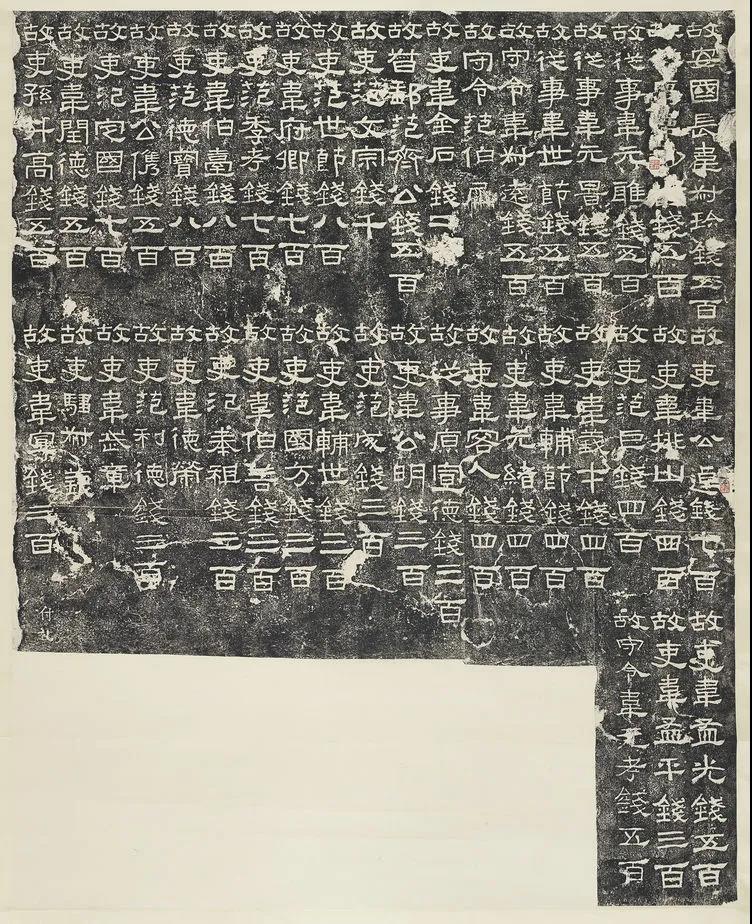 故安國長韋叔珍錢五百
故錢五百
故從事韋元雅錢五百
故從事韋元景錢五百
故從事韋世節錢五百
故守令韋叔遠錢五百
故守令范伯犀
故吏韋金石錢二
故督郵范齊公錢五百
故吏范文宗錢千
故吏范世節錢八百
故吏韋府卿錢七百
故吏范季考錢七百
故吏韋伯臺錢八百
故吏范德寶錢八百
故吏韋公儁錢五百
故吏氾定國錢七百
故吏韋閏德錢五百
故吏孫升高錢五百
故吏韋公逴錢七百
故吏韋排山錢四百
故吏范巨錢四百
故吏韋義才錢四百
故吏韋輔節錢四百
故吏韋元緒錢四百
故吏韋客人錢四百
故從事原宣德錢三百
故吏韋公明錢三百
故吏范成錢三百
故吏韋輔世錢三百
故吏范國方錢三百
故吏韋伯善錢三百
故吏氾奉祖錢三百
故吏韋德榮
故吏范利德錢三百
故吏韋武章
故吏騶叔義
故吏韋宣錢三百
故吏韋孟光錢五百
故吏韋孟平錢三百
故守令韋元考錢五百